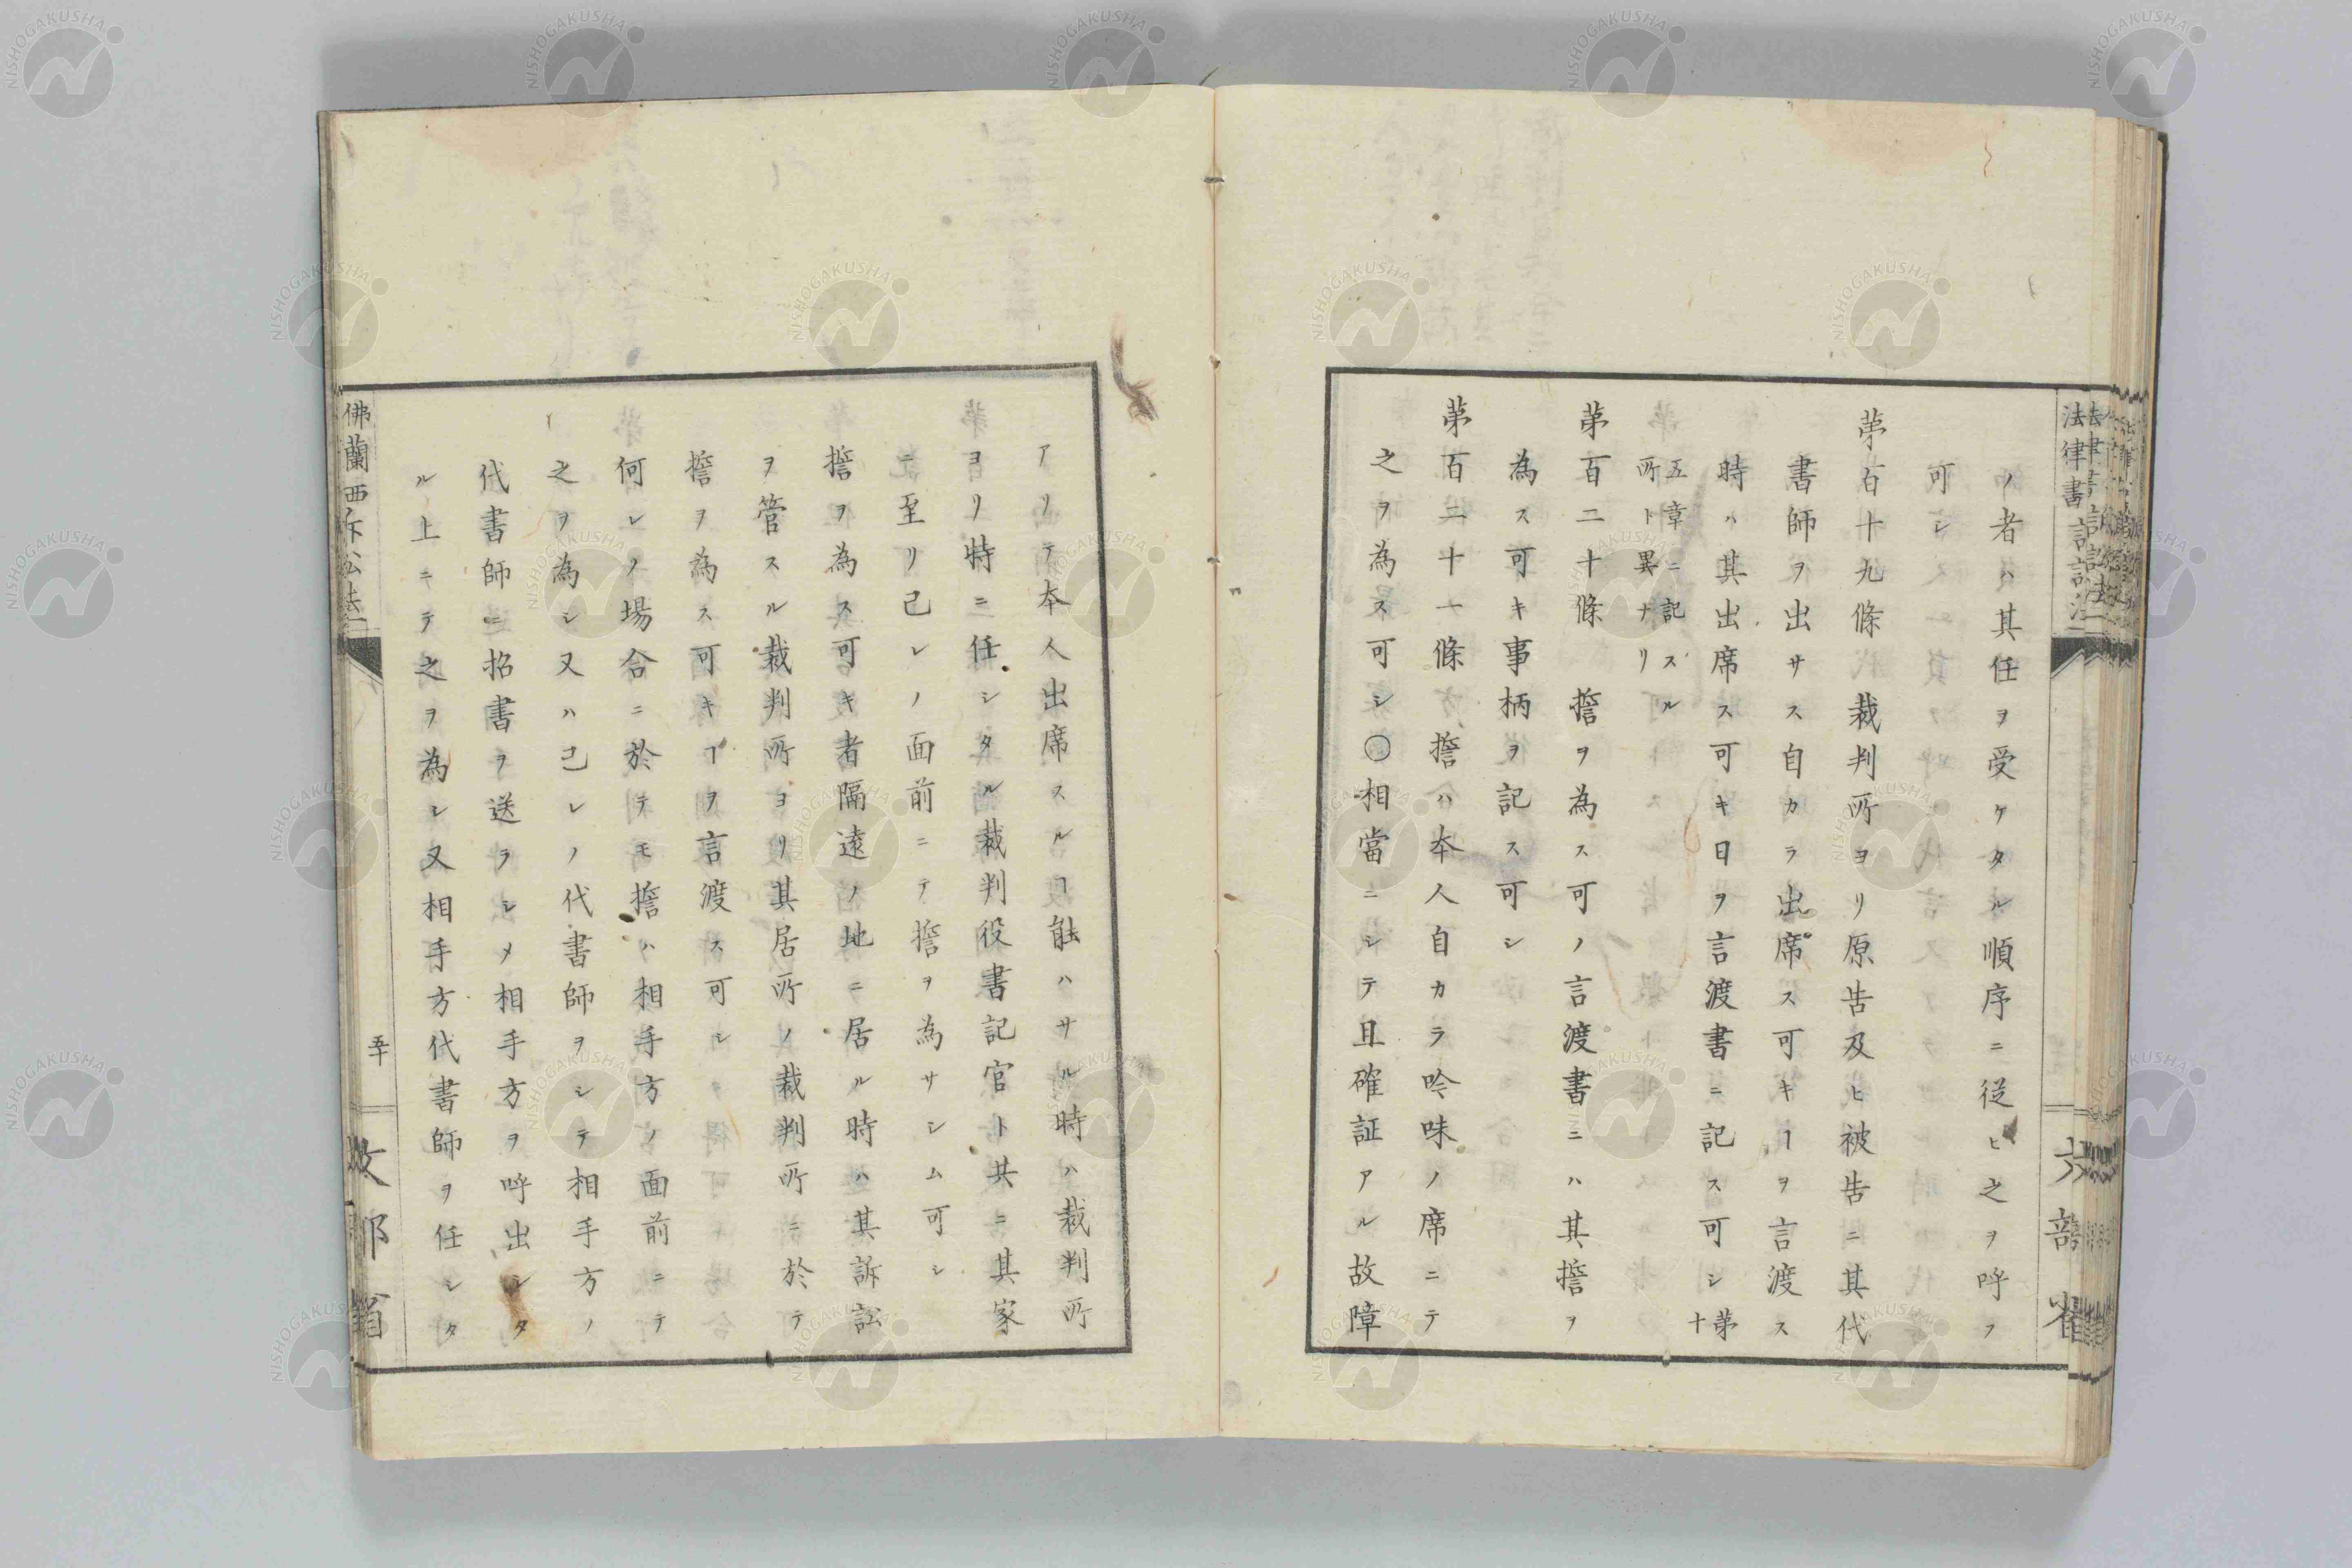 ノ者ハ其任ヲ受ケタル順序ニ従ヒ之ヲ呼フ
可シ
第百十九條 裁判所ヨリ原告及ヒ被告ニ其代
書師ヲ出サス自カラ出席ス可キヿヲ言渡ス
時ハ其出席ス可キ日ヲ言渡書ニ記ス可シ第十
五章ニ記スル
所ト異ナリ
第百二十條 擔ヲ為ス可ノ言渡書ニハ其擔ヲ
為ス可キ事柄ヲ記ス可シ
第百二十一條 擔ハ本人自カラ吟味ノ席ニテ
之ヲ為ス可シ〇相當ニシテ且確証アル故障
アリテ本人出席スルヿ能ハサル時ハ裁判所
ヨリ特ニ任シタル裁判役書記官ト共ニ其家
ニ至リ己レノ面前ニテ擔ヲ為サシム可シ
擔ヲ為ス可キ者隔遠ノ地ニ居ル時ハ其訴訟
ヲ管スル裁判所ヨリ其居所ノ裁判所ニ於テ
擔ヲ為ス可キヿヲ言渡ス可シ
何レノ場合ニ於テモ擔ハ相手方ノ面前ニテ
之ヲ為シ又ハ己レノ代書師ヲシテ相手方ノ
代書師ニ招書ヲ送ラシメ相手方ヲ呼出シタ
ル上ニテ之ヲ為シ又相手方代書師ヲ任シタ
佛蘭西訴訟法
五十
NISHOGAKUSHA